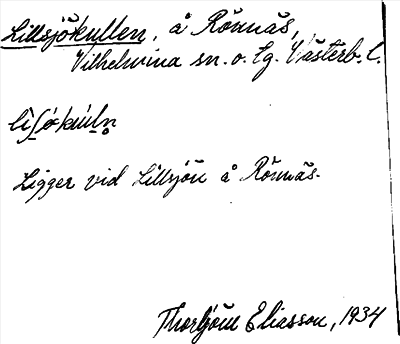 Lillsjökullen, å Rönnäs,
Vilhelmina sn. o. lg. Västerb. l.
Ligger vid Lillsjön å Rönnäs.
Thorbjörn Eliasson, 1934